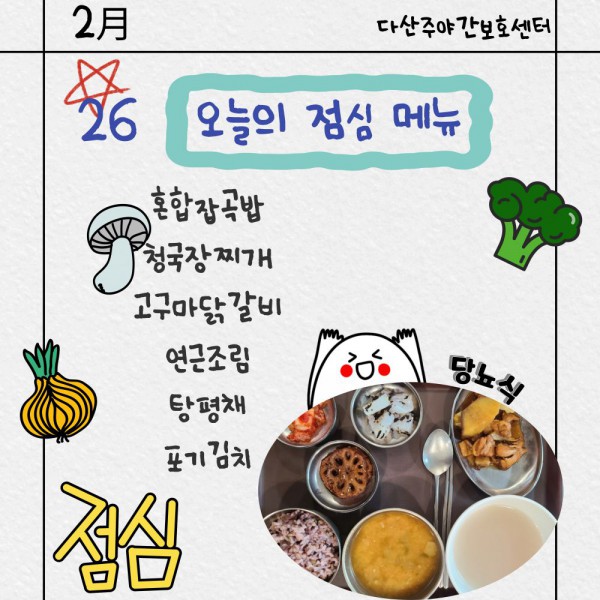 2月
다산주야간보호센터
26
오늘의 점심 메뉴
혼합잡곡밥
청국장찌개
고구마닭갈비
연근조림
탕평채
포기김치
당뇨식
점심